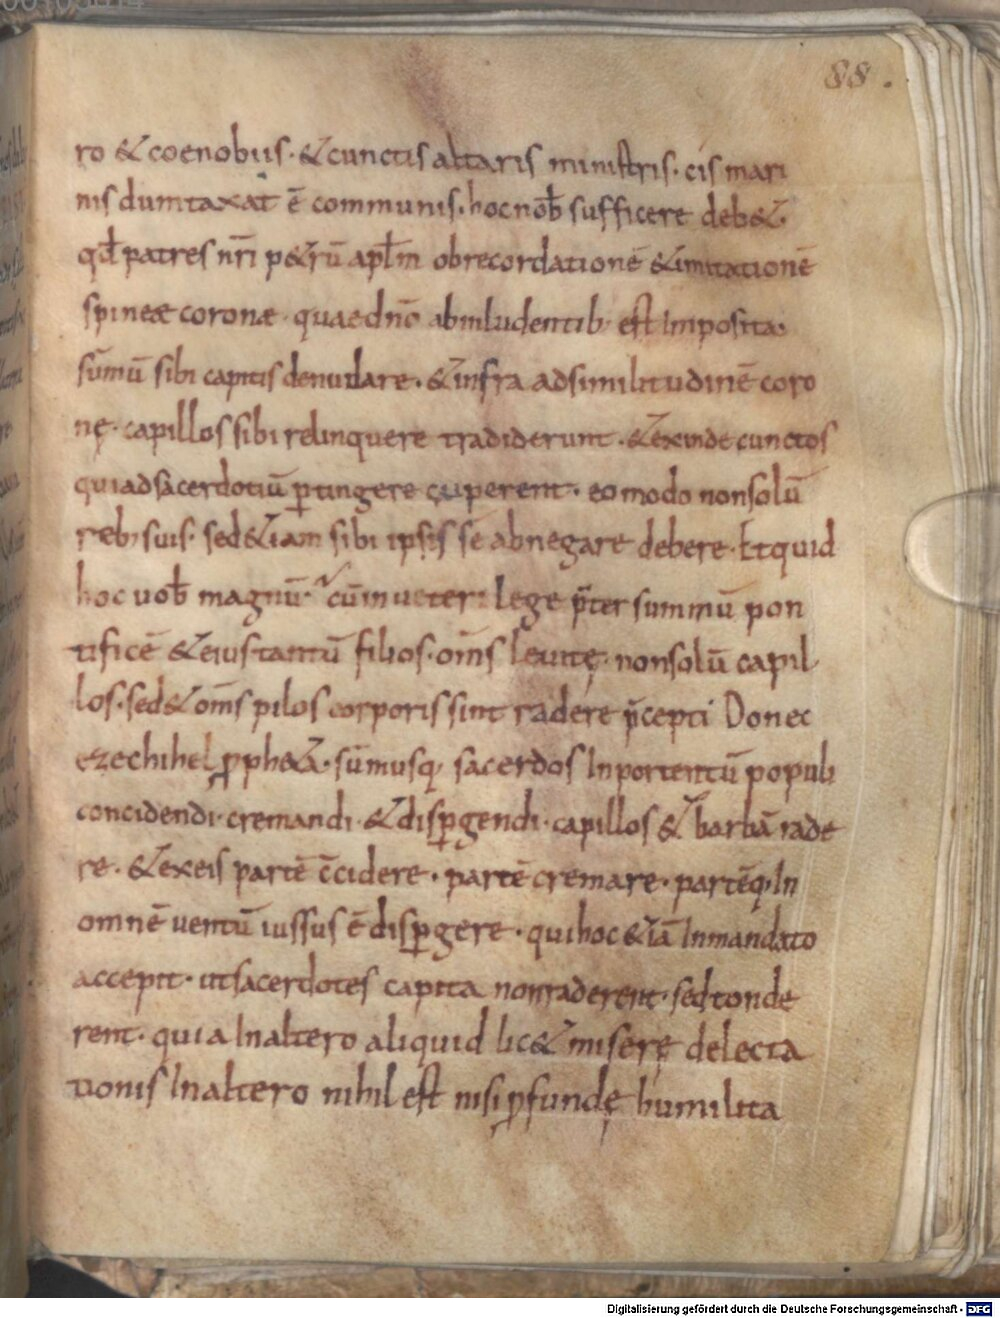 88.
ro & coenobiis · & cunctis altaris ministris · cis mari
nis dumtaxat ē communis · hoc nob̄ sufficere deb& ·
qd̄ patres nr̄i p&rū apl̄m ob recordationē & imitationē
spineae coronae · quae dn̄o ab inludentib; est Imposita ·
sūmū sibi capitis denudare · & infra ad similitudinē coro
nę · capillos sibi relinquere tradiderunt · & exinde cunctos
qui ad sacerdotiū ꝑtingere cuperent · eo modo non solū
reb; suis · sed &iam sibi ipsis se abnegare debere · Et quid
hoc uob̄ magnū · cū in ueteri lege p̄ter summū pon
tificē & eius tantū filios · om̄s leuitę · non solū capil
los · sed & om̄s pilos corporis sint radere p̄cepti Donec
ezechihel ꝓph&a · sūmusq; sacerdos In portentū populi
concidendi · cremandi · & disꝑgendi · capillos & barbā rade
re · & ex eis partē c̄cidere · partē cremare · partēq; In
omnē uentū iussus ē disꝑgere · qui hoc &iā In mandato
accepit · ut sacerdotes capita non raderent · sed tonde
rent · quia In altero aliquid lic& miserę delecta
tionis In altero nihil est nisi ꝓfundę humilita
Digitalisierung gefördert durch die Deutsche Forschungsgemeinschaft - DFG